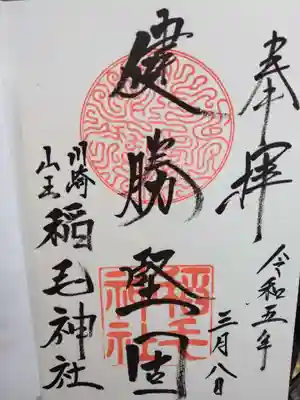 奉拝
令和五年
三月八日
健勝堅固
川崎
山王
稲毛神社
稲毛
神社